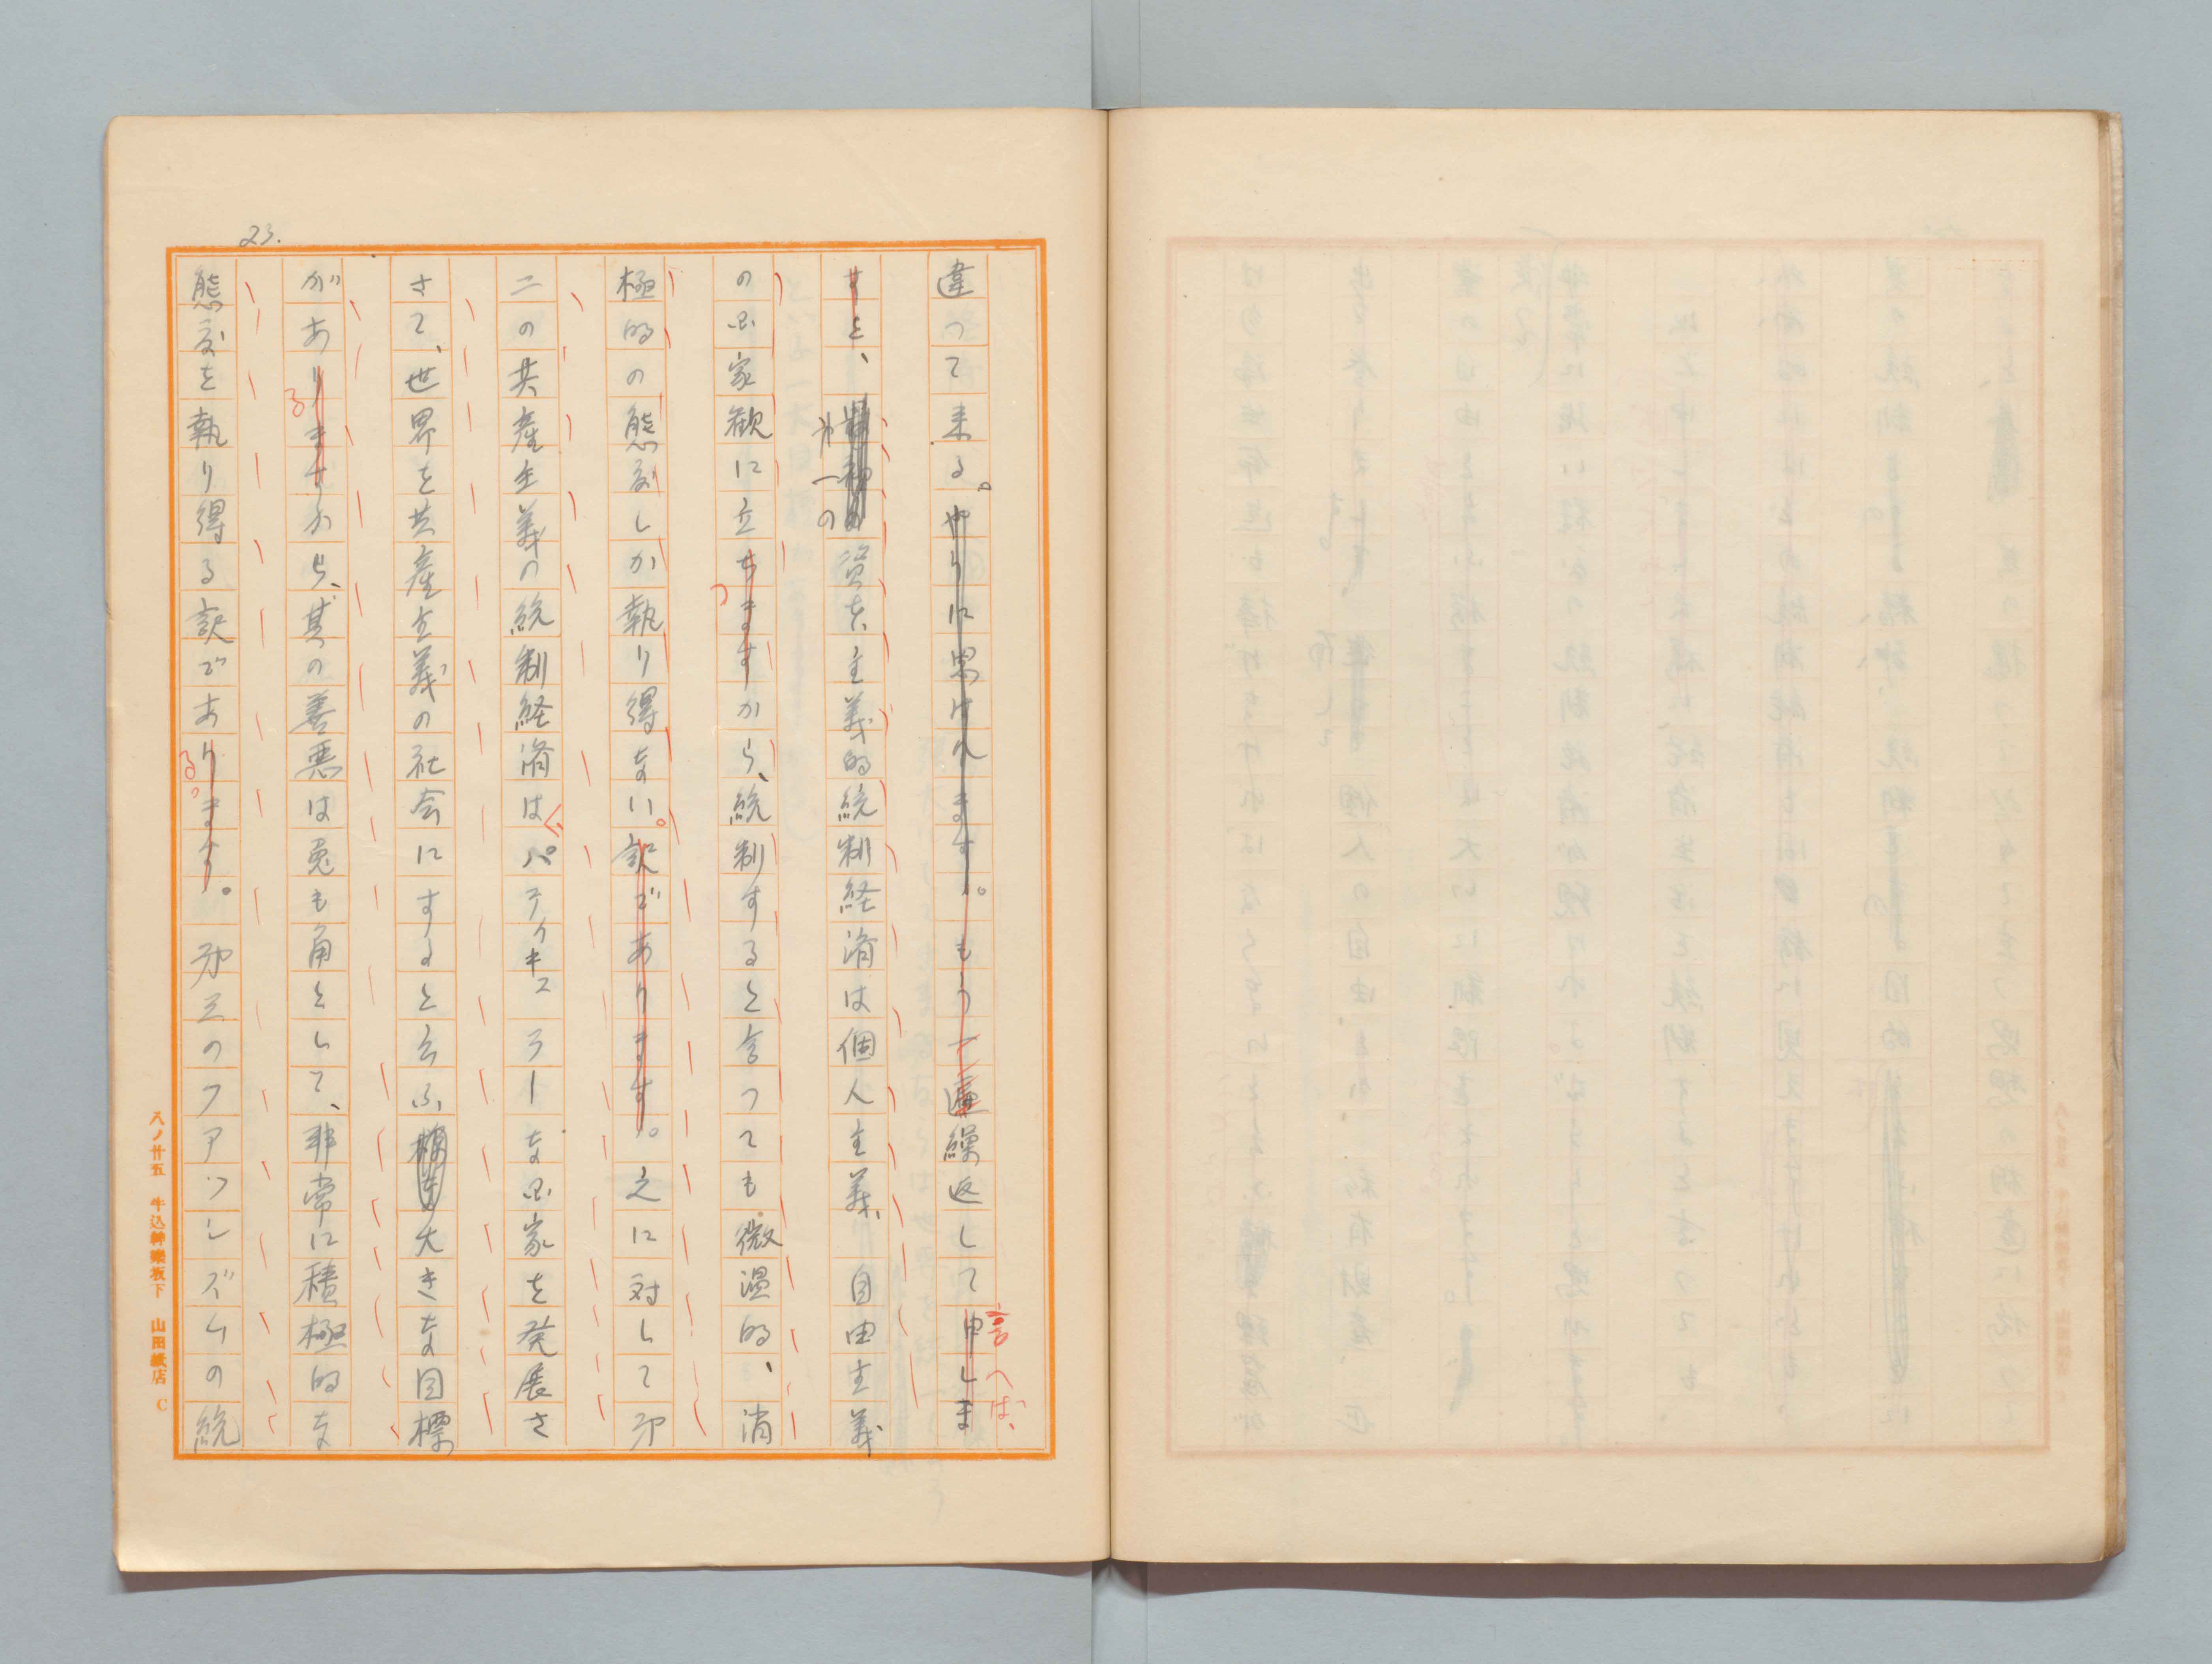 23.
違つて来る。やうに思はれます。もう一遍繰返して申しま
言へば、
すと、の資本主義的統制経済は個人主義、自由主義
第一の
の国家観に立ちますから、統制すると言つても微温的、消
つ
極的の態度しか執り得ない。訳であります。之に対して第
二の共産主義の統制経済はパラキスラーな国家を発展さ
さて、世界を共産主義の社会にすると云ふ大きな目標
がありますから、其の善悪は兎も角として、非常に積極的な
る
態度を執り得る訳であります。第三のファッシズムの統
る。
八ノ廿五 牛込神楽坂下 山田紙店 C